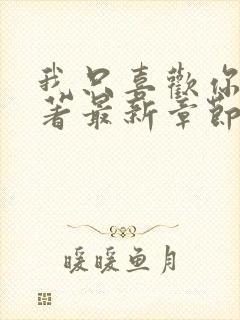 我只喜歡你
著最新章節
暖暖鱼月